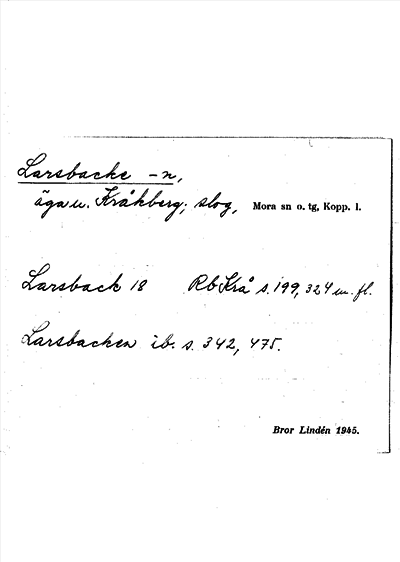 Larsbacke -n,
ägau. Kråkberg; slog, Mora sn o. tg, Kopp. l.
Larsback 18 Rb Krå s. 199, 324 m. fl.
Larsbacken ib. s. 342, 475.
Bror Lindén 1945.